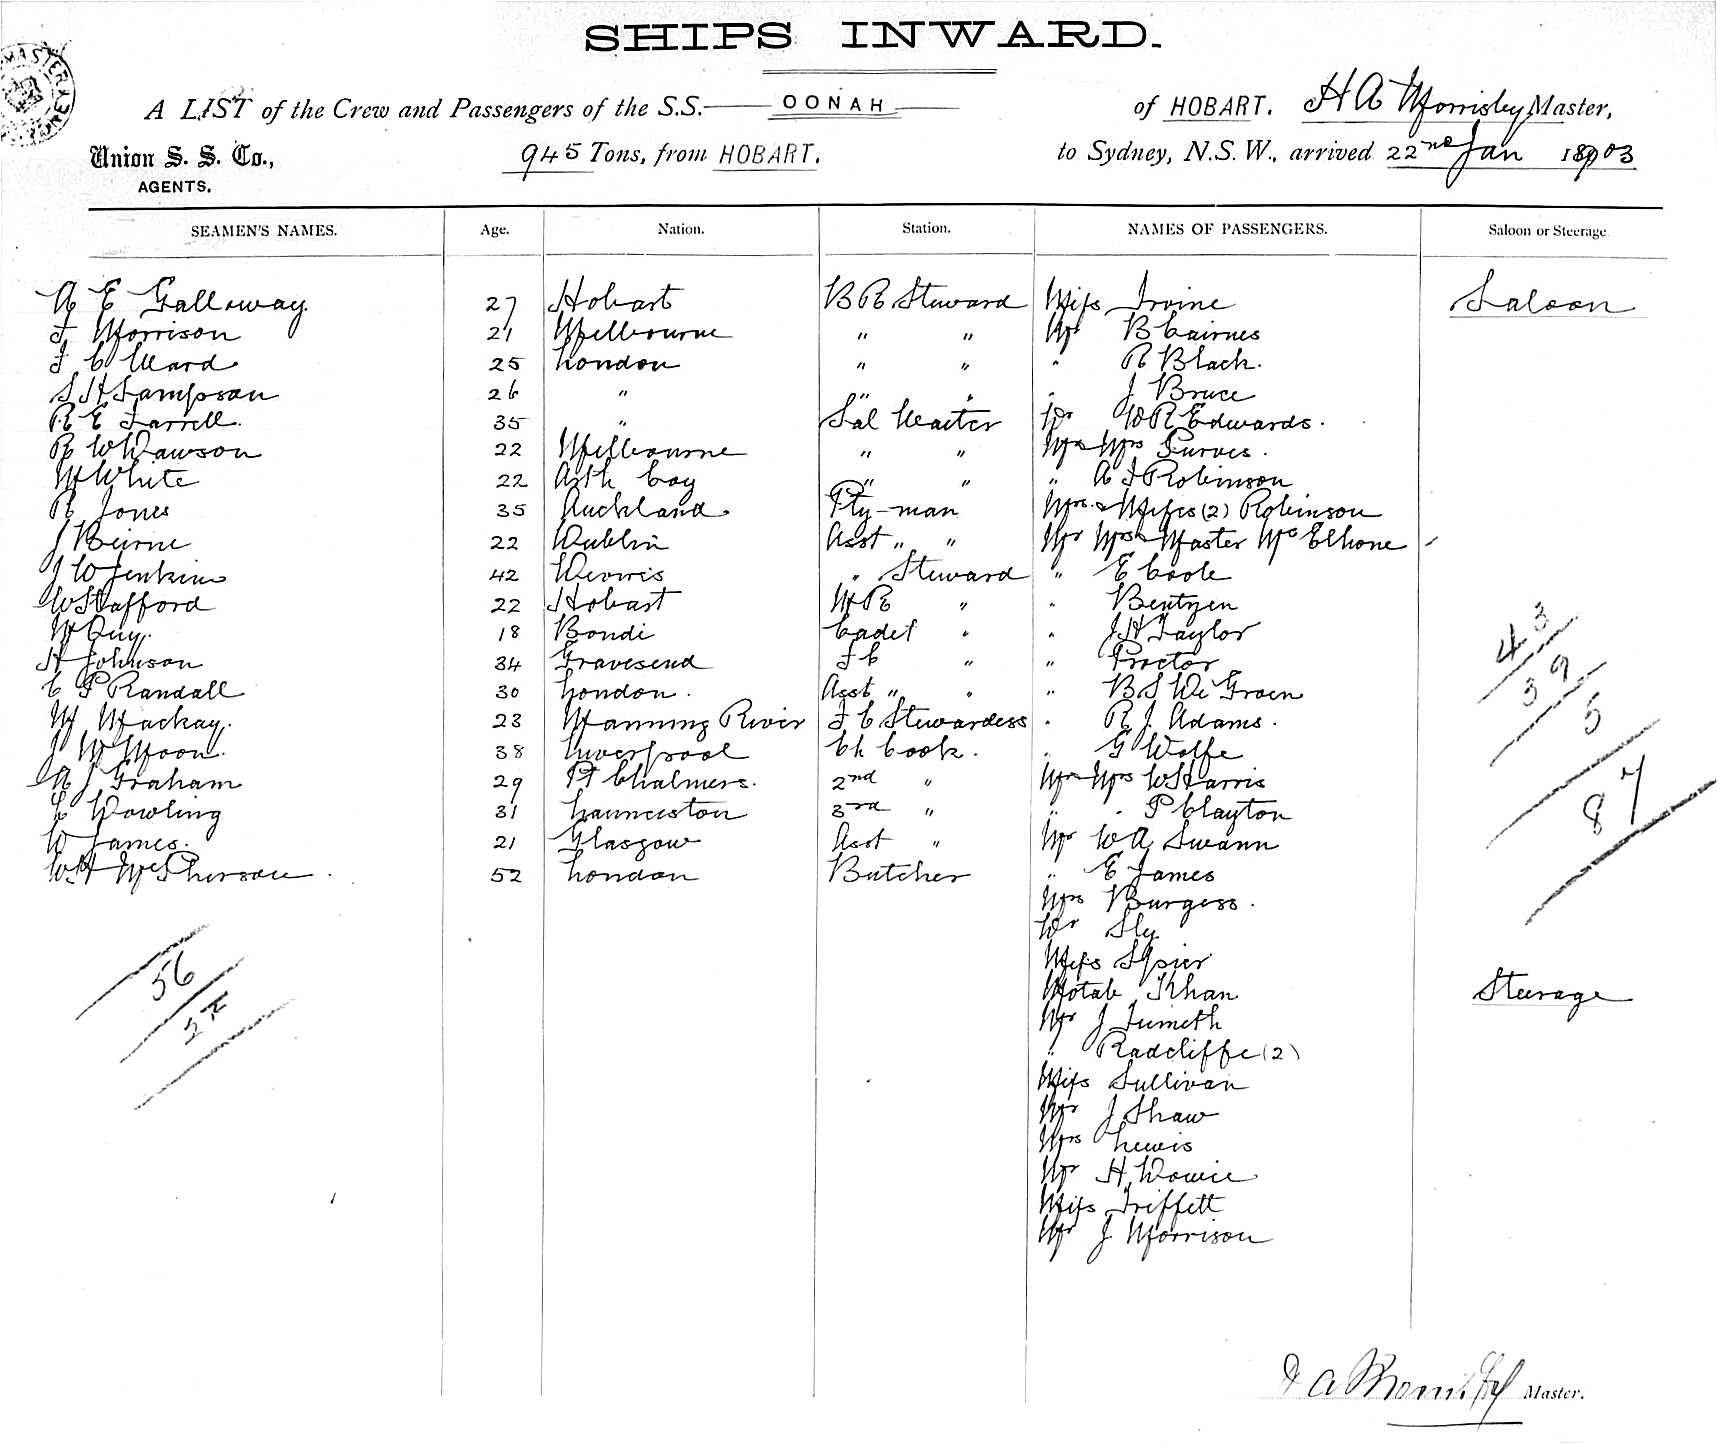 SHIPS INWARD.
A LIST of the Crew and Passengers of the S.S. OONAH of HOBART. H A Morrisby Master,
Union S. S. Co., 945 Tons, from HOBART. to Sydney, N.S.W., arrived 22nd Jan 1903
AGENTS.
SEAMEN'S NAMES. Age. Nation. Station. NAMES OF PASSENGERS. Saloon or Steerage
A E Galloway. 27 Hobart B R Steward Miss Irvine Saloon
F Morrison 21 Melbourne " " Mr B Cairnes
F C Ward 25 London " " " R Black.
S H Sampson 26 " " " " J Bruce
R E Farrell. 35 " Sal Waiter Dr W R Edwards.
R W Dawson 22 Melbourne " " Mr & Mrs Purves.
M White 22 " " " A J Robinson
R Jones 35 Auckland Pty-man Mrs & Misses (2) Robinson
J Beirne 22 Dublin Asst " " Mr Mrs & Master McElhone
J W Jenkins 42 " Steward " E Coole
W Stafford 22 Hobart " " Bentzen
M Quy. 18 Bondi Cadet " " J H Taylor
H Johnson 34 Gravesend F C " " Proctor
C P Randall 30 London. Asst " " " B S De Groen
M Mackay. 23 Manning River F C Stewardess " R J Adams.
J W Moon. 38 Liverpool Ch Cook. " G Wolfe
A J Graham 29 Pt Chalmers. 2nd " Mr & Mrs W Harris
C Dowling 31 Launceston 3rd " " " P Clayton
W James. 21 Glasgow Asst " Mr W A Swann
W H McPherson 52 London Butcher " E James
Mrs Burgess.
Dr Sly
Miss Spier
Motab Khan Steerage
Mr J
" Radcliffe (2)
Miss Sullivan
Mr J Shaw
Mrs Lewis
Mr H Dowie
Miss Triffett
Mr J Morrison
43
39
5
87
56
Master.